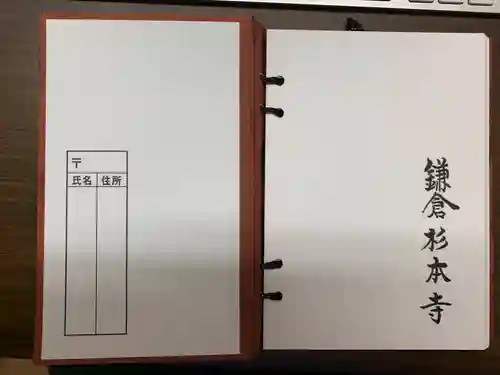 〒
氏名 住所
鎌倉杉本寺